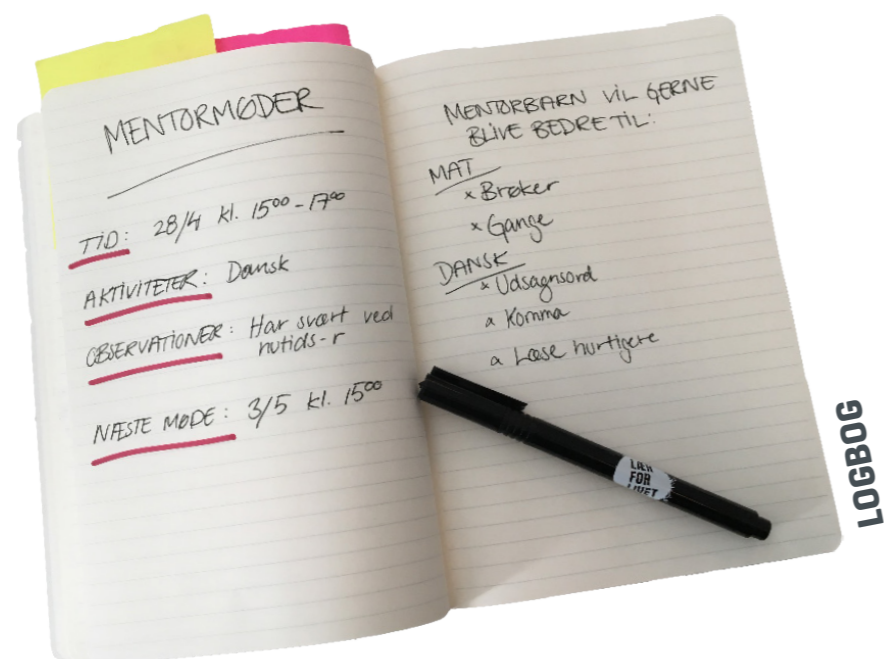 MENTORMØDER
TID: 28/4 kl. 15⁰⁰-17⁰⁰
AKTIVITETER: Dansk
OBSERVATIONER: Har svært ved
nutids-r
NÆSTE MØDE: 3/5 kl. 15⁰⁰
MENTORBARN VIL GERNE
BLIVE BEDRE TIL:
MAT
× Brøker
× Gange
DANSK
× Udsagnsord
× Komma
× Læse hurtigere
LÆR
FOR
LIVET
LOGBOG